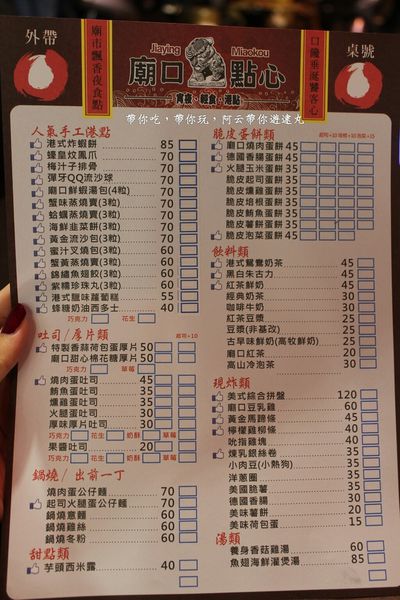 外帶
廟市飄香夜食點
Jiaying Miaokou
廟口點心
宵夜・輕食・港點
口饞垂涎饕客心
桌號
帶你吃，帶你玩，阿云帶你遊達丸
人氣手工港點
港式炸蝦餅 85
蠔皇炆鳳爪 70
梅汁子排骨 70
彈牙QQ流沙球 70
廟口鮮蝦湯包(4粒) 70
蟹味蒸燒賣(3粒) 70
蛤蠣蒸燒賣(3粒) 70
海鮮韭菜餅(3粒) 70
黃金流沙包(3粒) 70
蜜汁叉燒包(3粒) 60
蟹黃蒸燒賣(3粒) 60
錦繡魚翅餃(3粒) 60
紫糯珍珠丸(3粒) 60
港式臘味蘿蔔糕 55
蜂糖奶油西多士 40
巧克力 花生
吐司/厚片類
起司+10
特製香蒜荷包蛋厚片 50
廟口甜心棉花糖厚片 50
巧克力 草莓
燒肉蛋吐司 45
鮪魚蛋吐司 35
燻雞蛋吐司 35
火腿蛋吐司 30
厚味厚片吐司 30
巧克力 花生 奶酥 草莓
果醬吐司 20
巧克力 花生 奶酥 草莓
鍋燒/出前一丁
燒肉蛋公仔麵 70
起司火腿蛋公仔麵 70
鍋燒意麵 60
鍋燒雞絲 60
鍋燒冬粉 60
甜點類
芋頭西米露 40
脆皮蛋餅類
廟口燒肉蛋餅 45
德國香腸蛋餅 45
火腿玉米蛋餅 35
脆皮起司蛋餅 35
脆皮燻雞蛋餅 35
脆皮培根蛋餅 35
脆皮鮪魚蛋餅 35
脆皮薯餅蛋餅 35
脆皮泡菜蛋餅 35
飲料類
港式鴛鴦奶茶 35
黑白朱古力 35
紅茶鮮奶 35
經典奶茶 30
咖啡牛奶 30
紅茶豆漿 30
豆漿(非基改) 25
古早味鮮奶(高牧鮮奶) 25
廟口紅茶 20
高山冷泡茶 30
現炸類
美式綜合拼盤 120
廟口豆乳雞 60
黃金馬蹄條 45
檸檬雞柳條 40
吮指雞塊 40
煉乳銀絲卷 35
小肉豆(小熱狗) 35
洋蔥圈 35
美國脆薯 35
德國香腸 30
美味薯餅 20
美味荷包蛋 15
湯類
養身香菇雞湯 60
魚翅海鮮灌煲湯 85